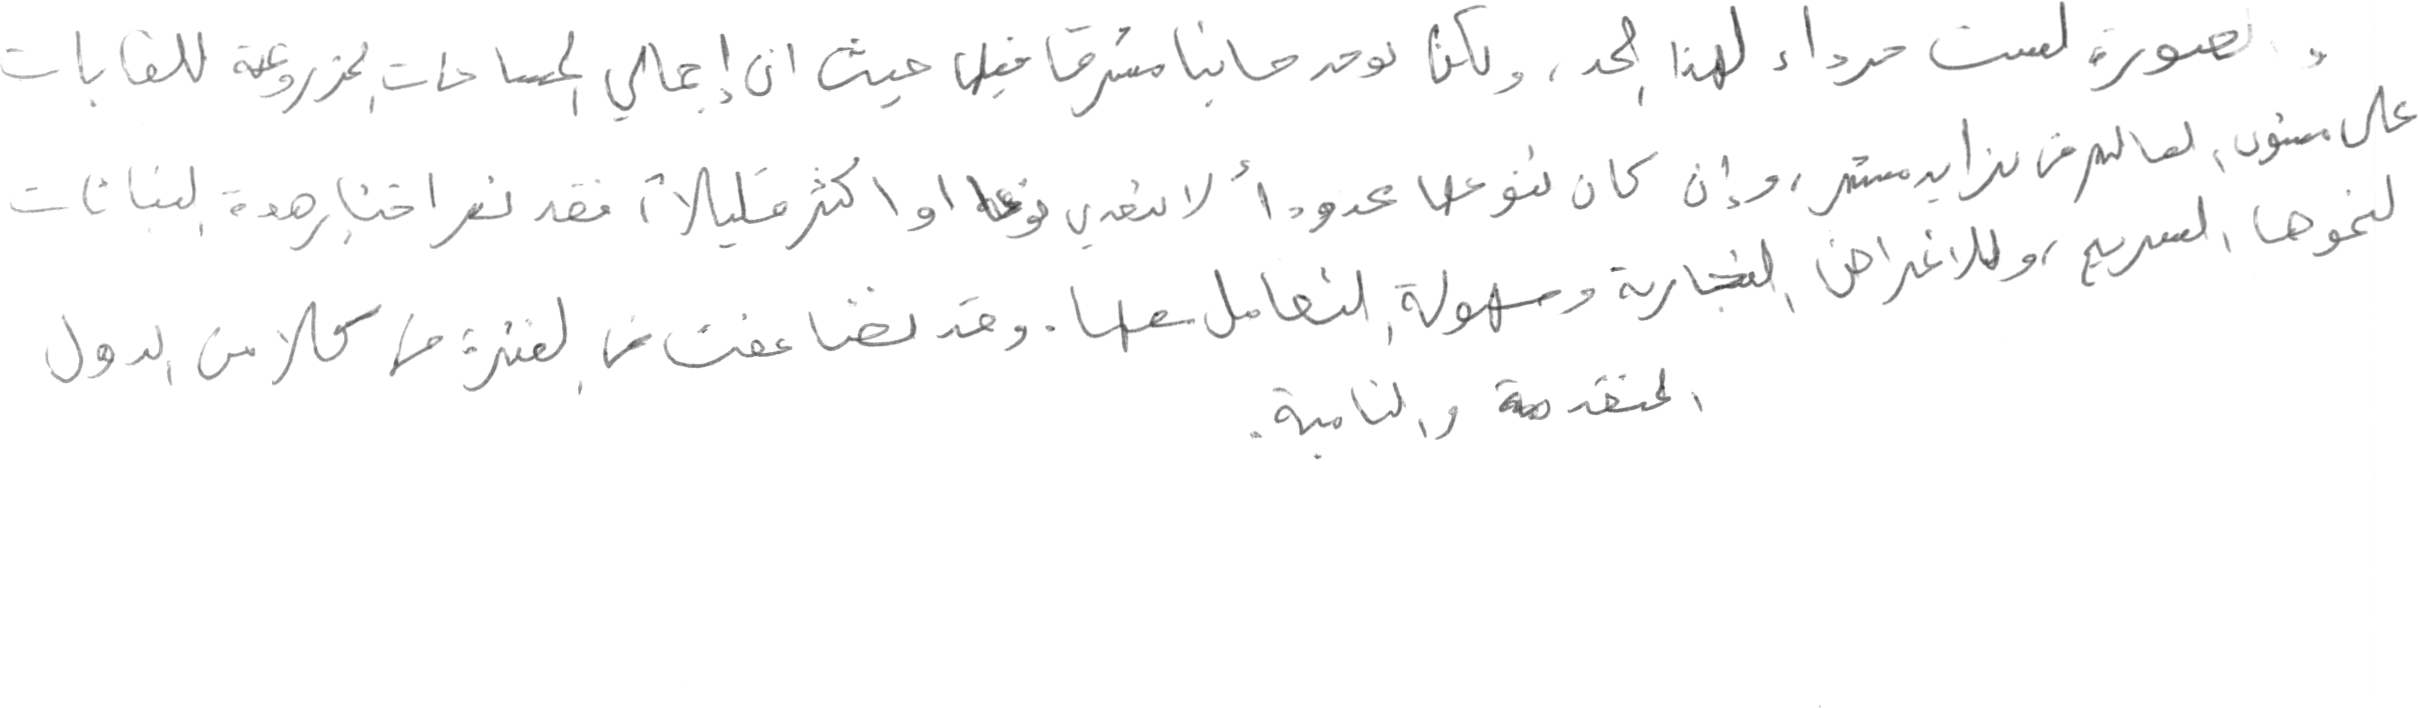 والصورة ليست جرداء لهذا الحد، ولكن يوجد جانبا مشرقا فيها حيث ان إجمالي المساحات المزروعة للغابات
على مستوى العالم في تزايد مستمر، وإن كان تنوعها محدوداً لا يتعدى نوعا او اكثر قليلاً، فقد تم اختيار هذة النباتات
لنموها السريع، وللاغراض التجارية وسهولة التعامل معها. وقد تضاعفت في الفترة في كلا من الدول
المتقدمة والنامية.